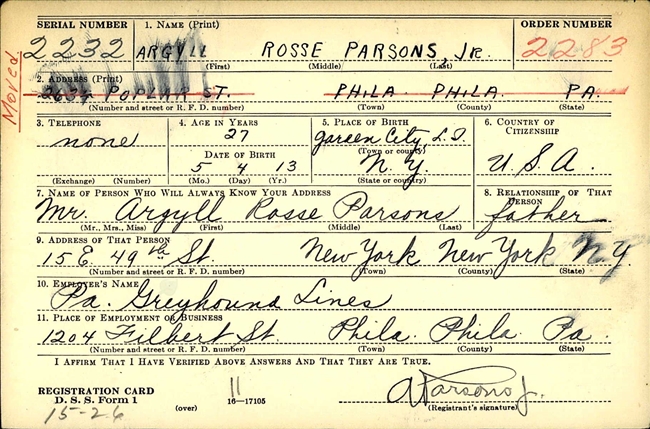 SERIAL NUMBER 1. NAME (Print) ORDER NUMBER
2232 ARGYLL ROSSE PARSONS, JR. 2283
(First) (Middle) (Last)
Moved
2. ADDRESS (Print)
2634 POPLAR ST. PHILA PHILA. PA.
(Number and street or R. F. D. number) (Town) (County) (State)
3. TELEPHONE 4. AGE IN YEARS 5. PLACE OF BIRTH 6. COUNTRY OF CITIZENSHIP
none 27 Garden City L.I. U.S.A.
(Town or county)
DATE OF BIRTH
5 4 13 N.Y.
(Exchange) (Number) (Mo.) (Day) (Yr.) (State or country)
7. NAME OF PERSON WHO WILL ALWAYS KNOW YOUR ADDRESS 8. RELATIONSHIP OF THAT PERSON
Mr. Argyll Rosse Parsons father
(Mr., Mrs., Miss) (First) (Middle) (Last)
9. ADDRESS OF THAT PERSON
15 E. 49th St. New York New York N.Y.
(Number and street or R. F. D. number) (Town) (County) (State)
10. EMPLOYER'S NAME
Pa. Greyhound Lines
11. PLACE OF EMPLOYMENT OR BUSINESS
1204 Filbert St. Phila. Phila. Pa
(Number and street or R. F. D. number) (Town) (County) (State)
I AFFIRM THAT I HAVE VERIFIED ABOVE ANSWERS AND THAT THEY ARE TRUE.
REGISTRATION CARD 11 AParsons Jr.
D. S. S. Form 1 (over) 16—17105 (Registrant's signature)
15-26